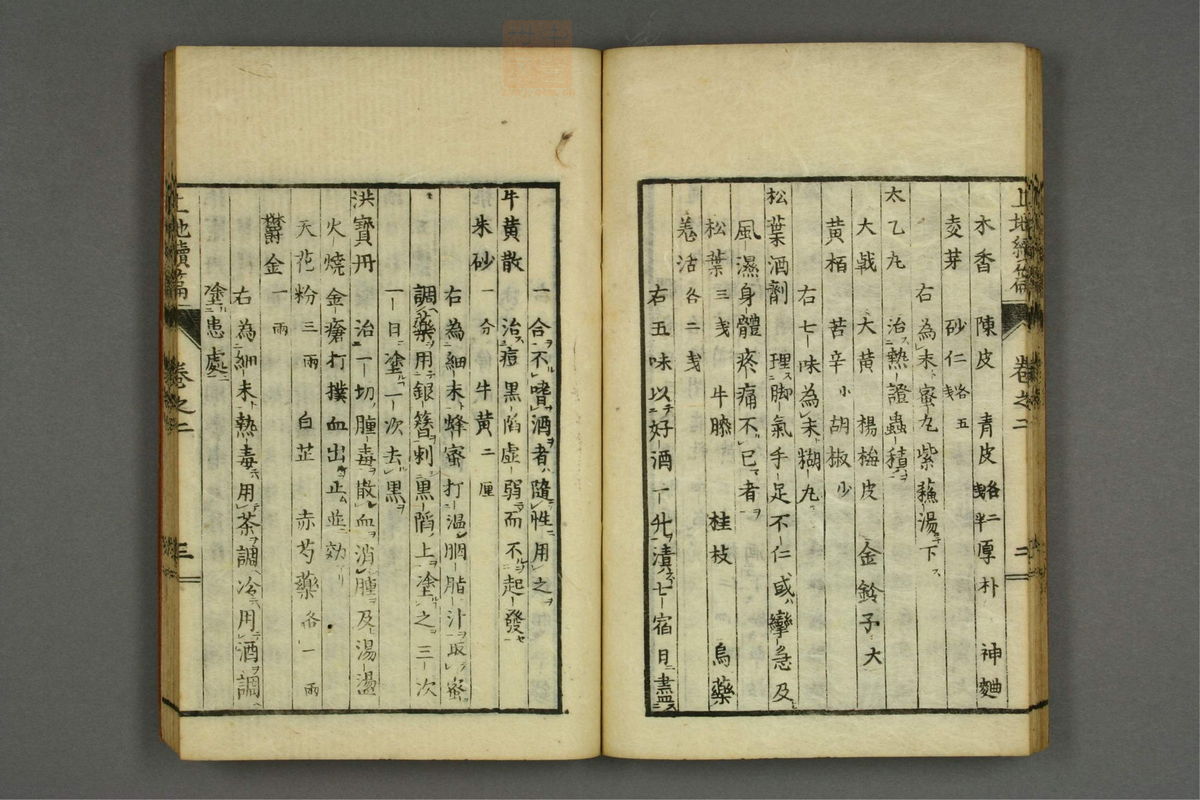 木香　陳皮　青皮各二戔半　厚朴　神麯
麦芽　砂仁各五戔
右為末蜜丸紫蘓湯下
太乙丸　治熱證蟲積
大戟　大黄　楊梅皮　金鈴子大
黄栢　苦辛小　胡椒少
右七味為末糊丸
松葉酒劑　理脚氣手足不仁或攣急及
風濕身體疼痛不已者
松葉三戔　牛膝　桂枝　烏藥
羗活各二戔
右五味以好酒一升漬七宿日盡
上池續篇　卷之二　二
一合不嗜酒者隨性用之
牛黄散　治痘黒陷虚弱而不起發
朱砂一分　牛黄二厘
右為細末蜂蜜打溫胭脂汁取蜜
調藥用銀簪刺黒陷上塗之三次
一日塗一次去黒
洪寶丹　治一切腫毒散血消腫及湯盪
火燒金瘡打撲血出止並効
天花粉三兩　白芷　赤芍藥各一兩
欝金一兩
右為細末熱毒用茶調冷用酒調
塗患處
上池續篇　卷之二　三